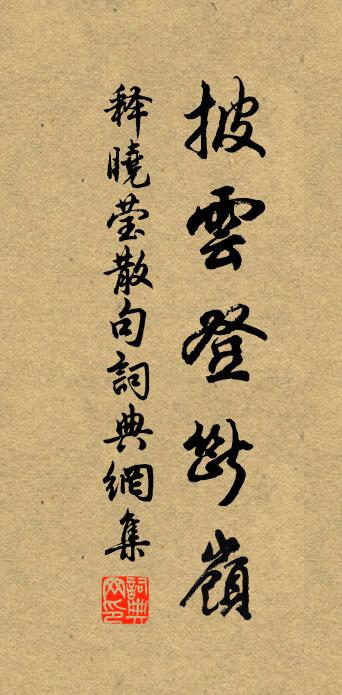 披雲登斷嶺
释曉瑩散句詞典網集
詞典网印